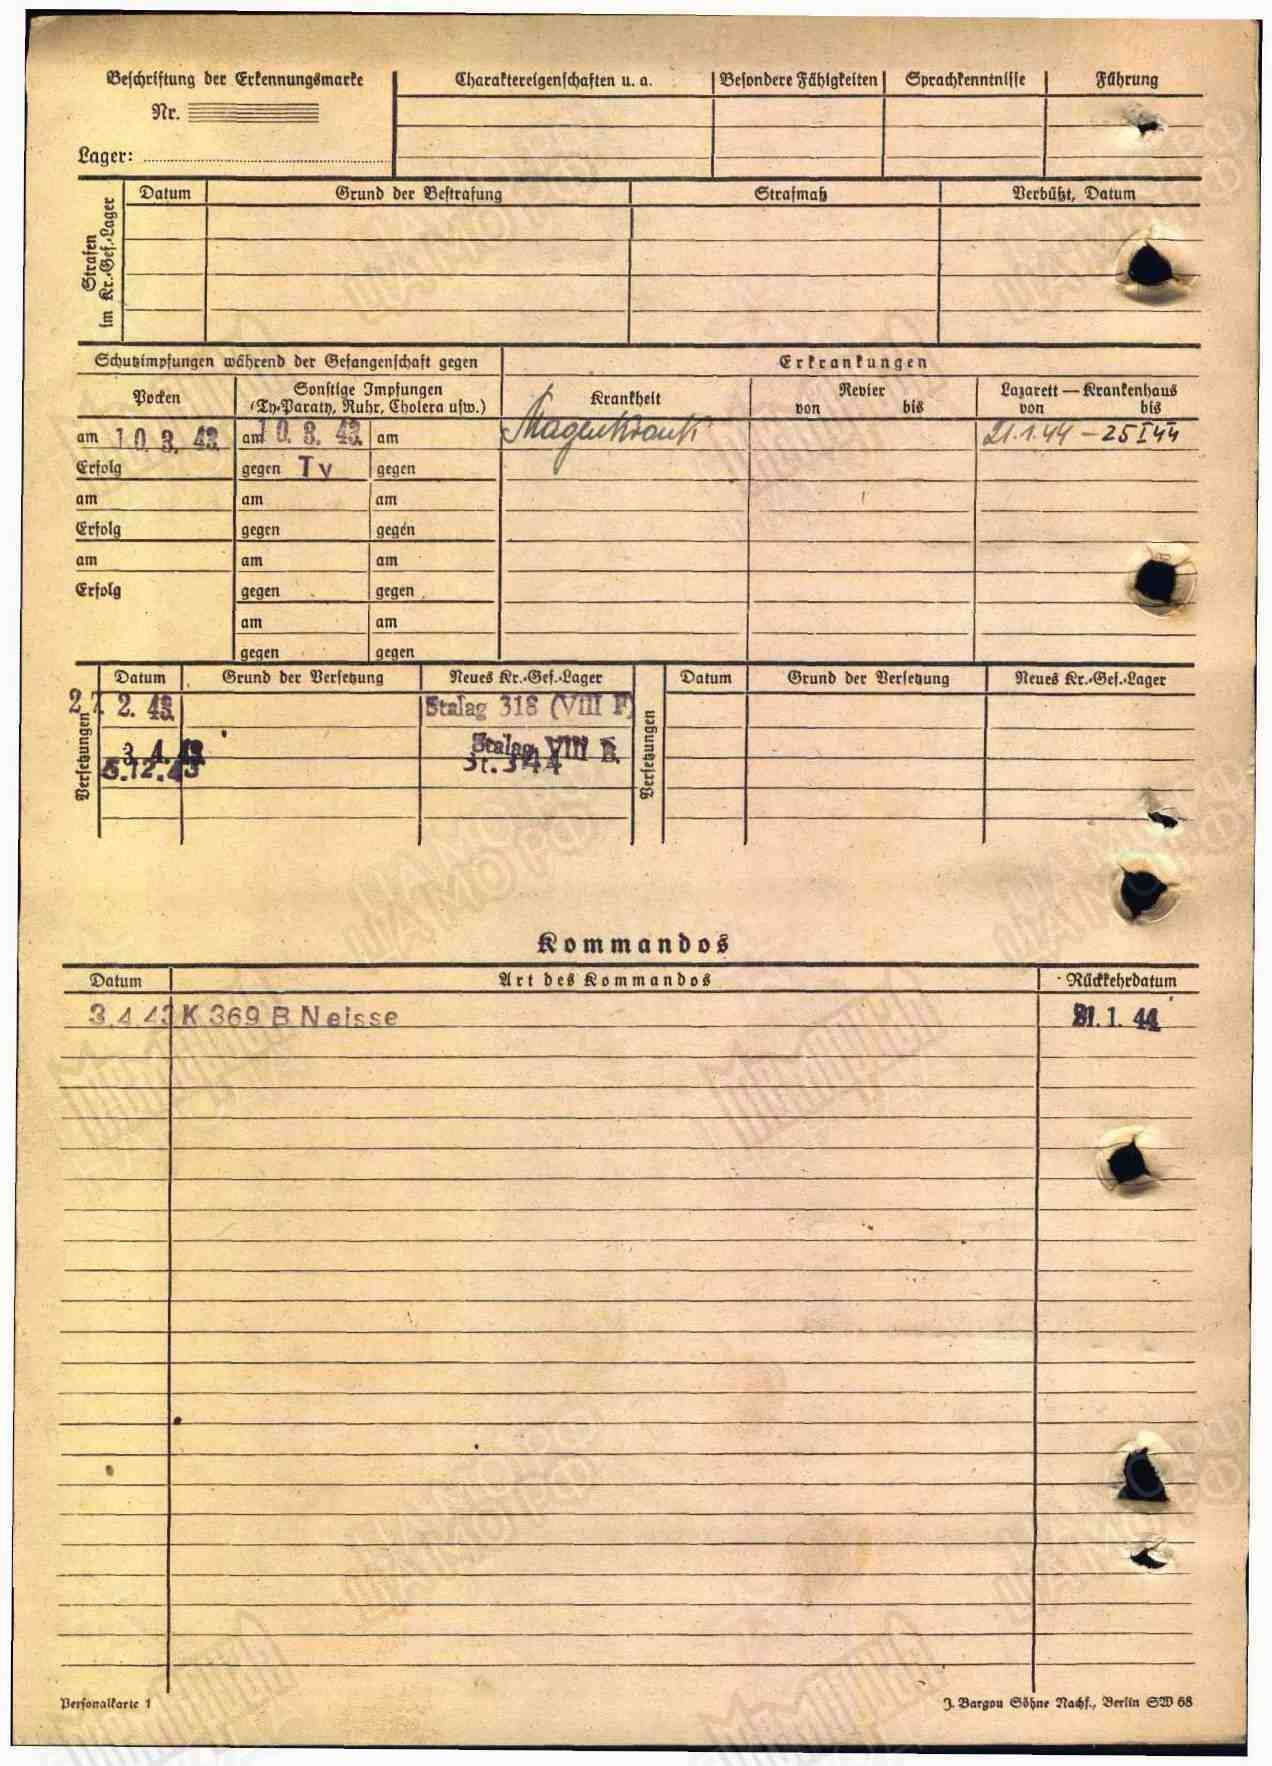 Beschriftung der Erkennungsmarke
Nr.
Lager:
Charaktereigenschaften u. a.
Besondere Fähigkeiten
Sprachkenntnisse
Führung
Strafen
im Kr.-Gef.-Lager
Datum
Grund der Bestrafung
Strafmaß
Verbüßt, Datum
Schutzimpfungen während der Gefangenschaft gegen
Erkrankungen
Pocken
Sonstige Impfungen
(Ty-Paraty, Ruhr, Cholera usw.)
Krankheit
Revier
von bis
Lazarett — Krankenhaus
von bis
am 10. 3. 43. am 10. 3. 43. am
Magenkrank
21.1.44 – 25 I 44
Erfolg gegen Ty gegen
am am am
Erfolg gegen gegen
am am am
Erfolg gegen gegen
am am
gegen gegen
Versetzungen
Datum Grund der Versetzung Neues Kr.-Gef.-Lager
27. 2. 43. Stalag 318 (VIII F)
3. 4. 43. Stalag VIII B
5.12.43 St. 344
Versetzungen
Datum Grund der Versetzung Neues Kr.-Gef.-Lager
Kommandos
Datum Art des Kommandos Rückkehrdatum
3.4.43 K 369 B Neisse 21. 1. 44
Personalkarte 1
J. Bargou Söhne Nachf., Berlin SW 68
ЦАМО РФ
Мемориал